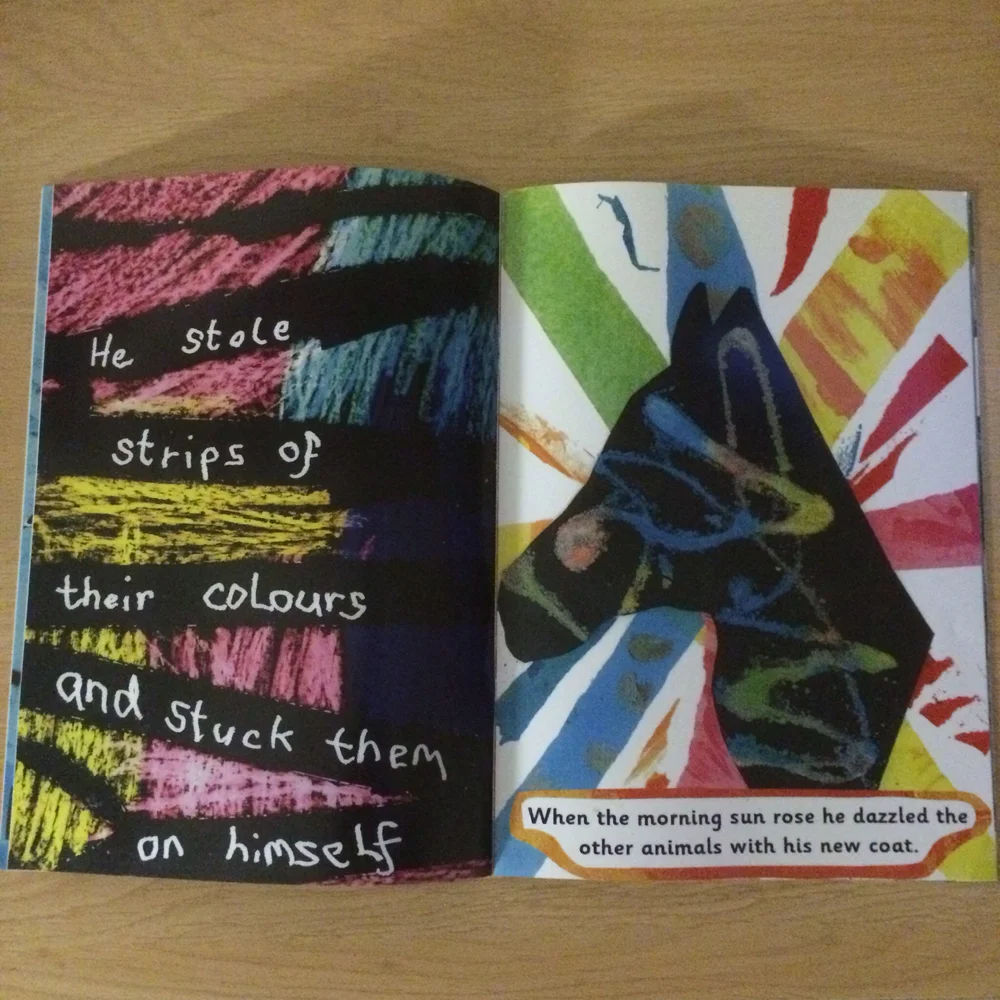 He stole
strips of
their colours
and stuck them
on himself
When the morning sun rose he dazzled the
other animals with his new coat.